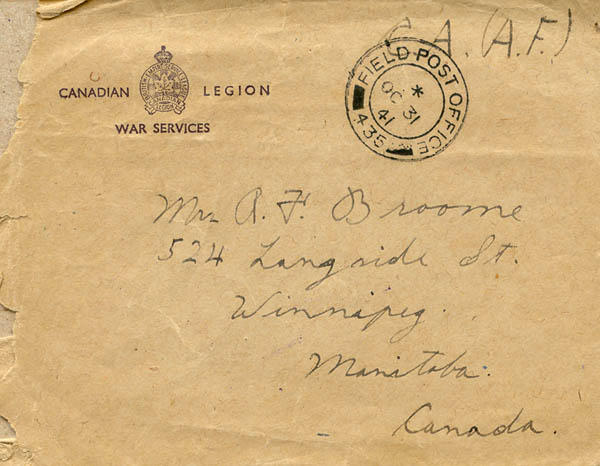 C.A.(A.F.)
CANADIAN LEGION
WAR SERVICES
FIELD POST OFFICE
*
OC 31
41
435
Mr. R. F. Broome
524 Langside St.
Winnipeg.
Manitoba.
Canada.